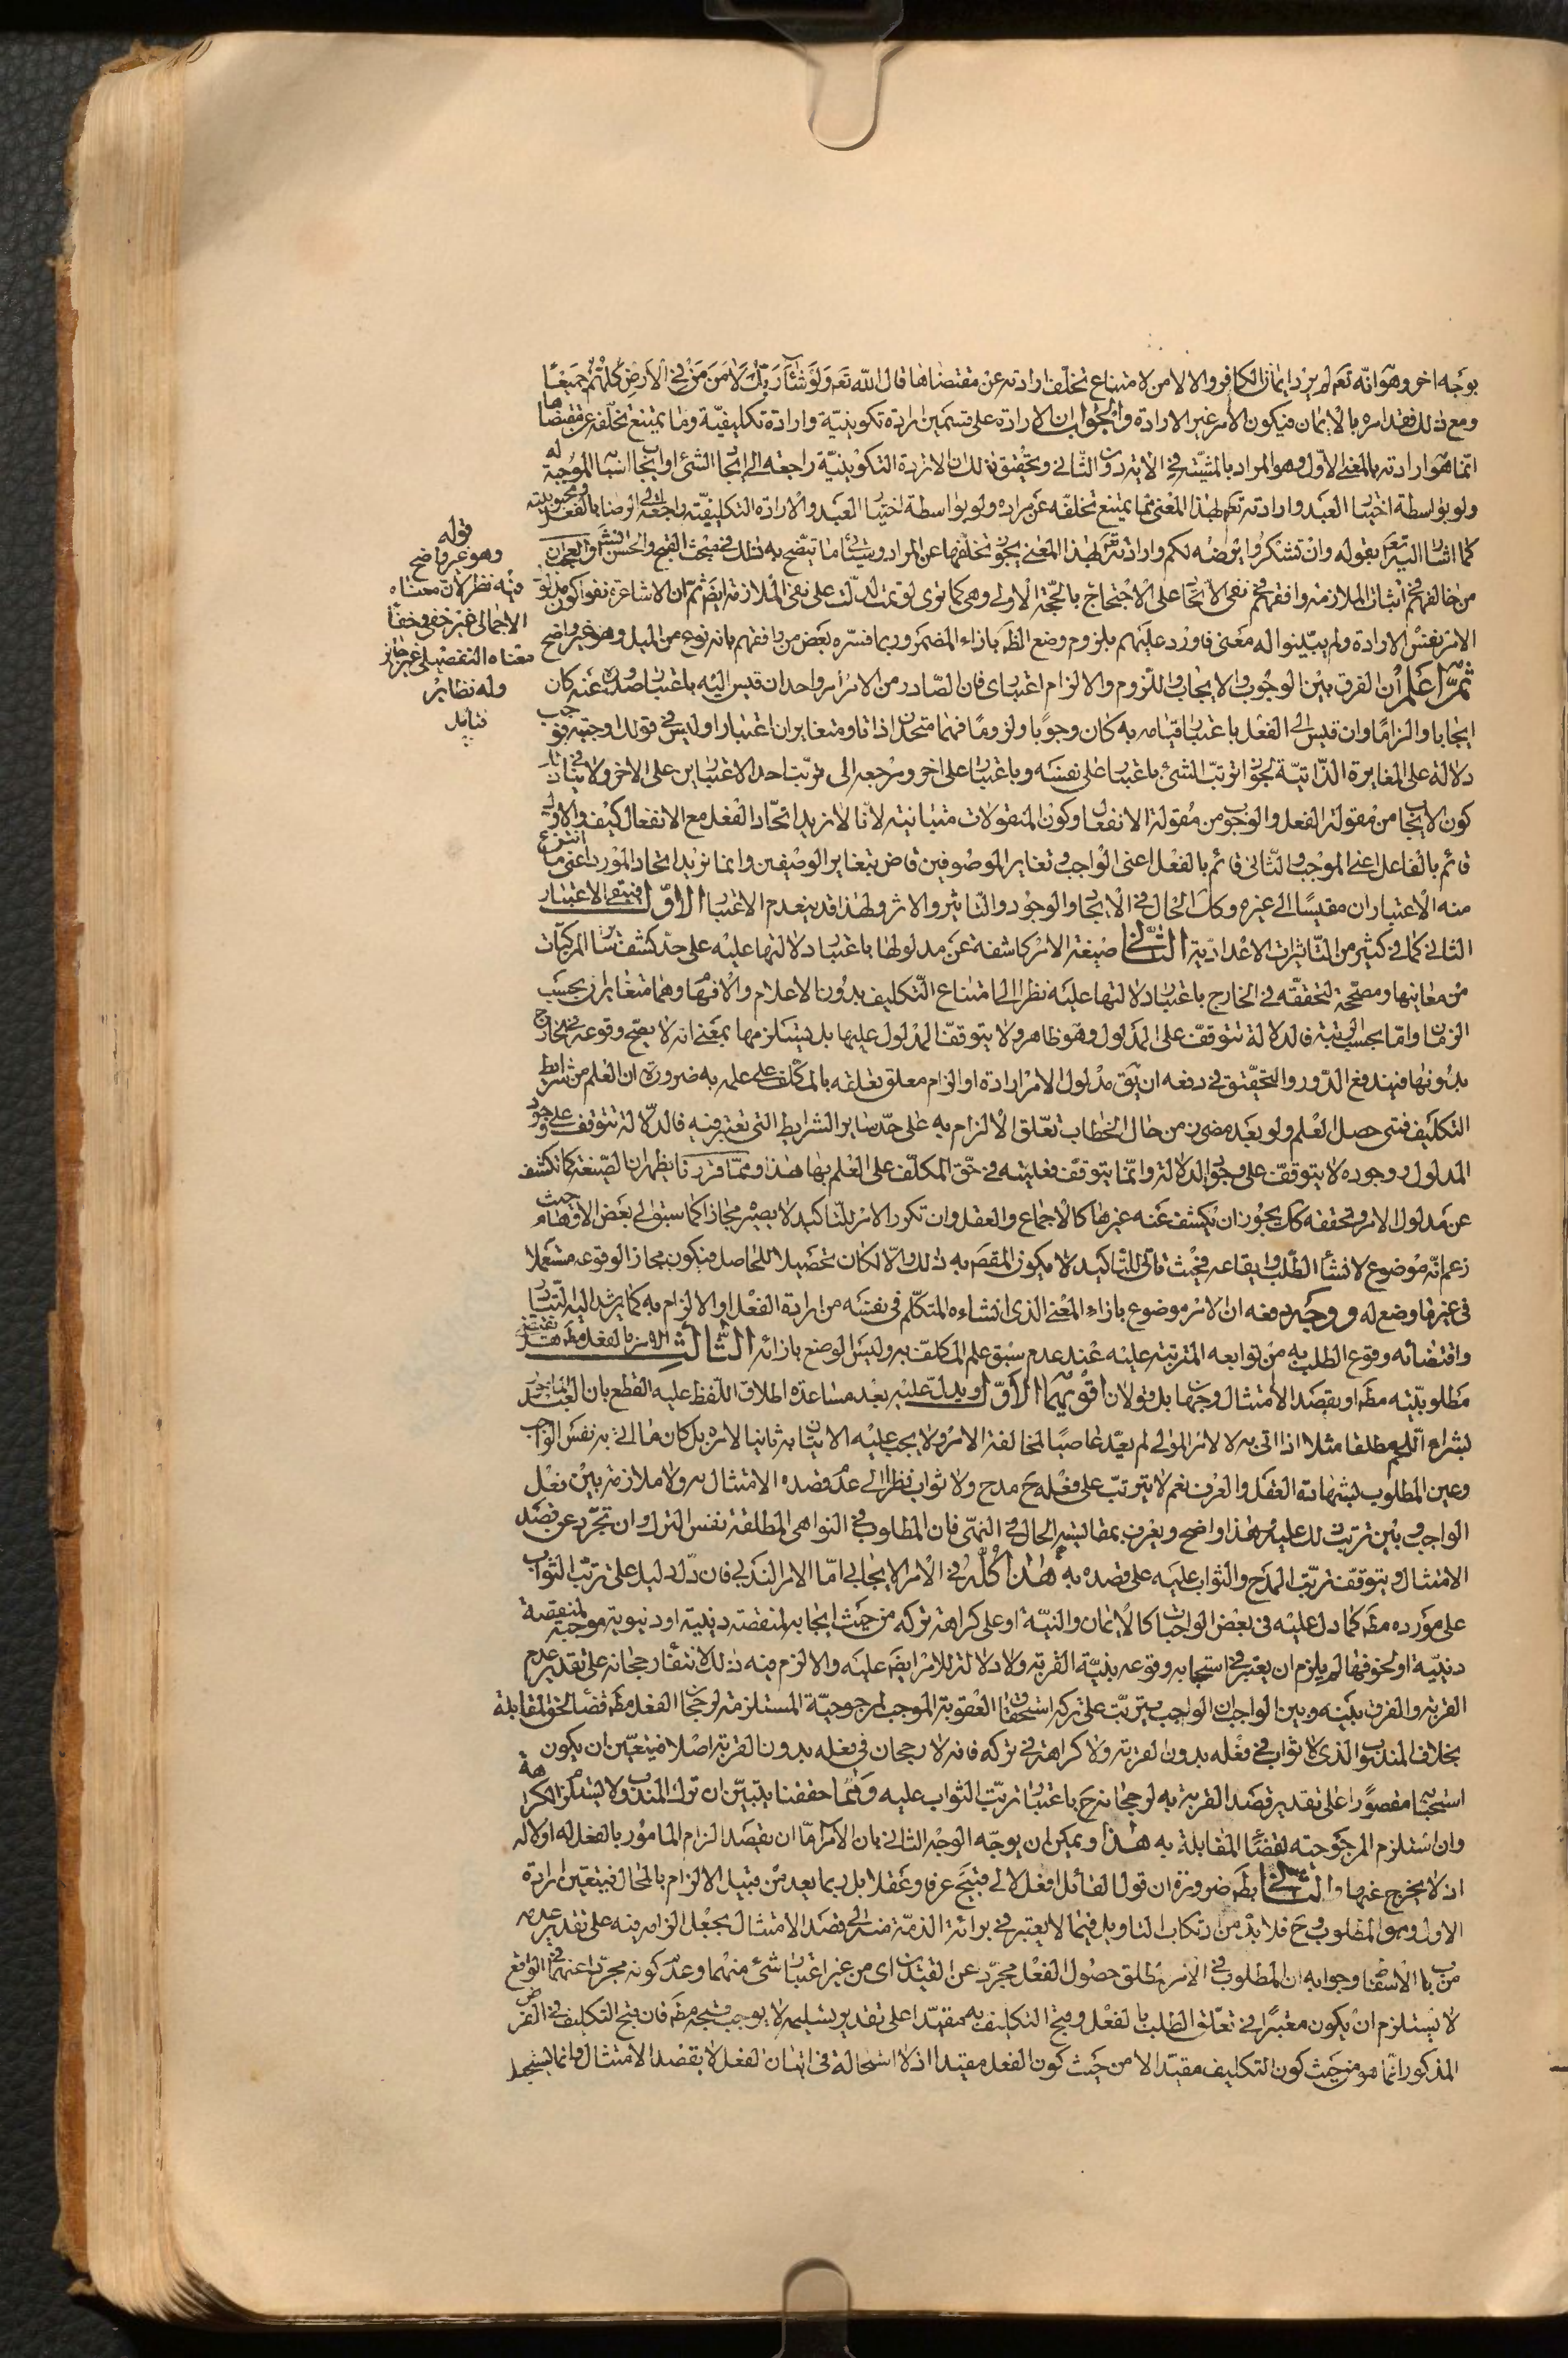 بوجه اخر وهو انّه تعه لم يرد ايمان الكافر والا لامن لامتناع تخلف ارادته عن مقتضاها قال الله تعه ولو شاء ربّك لامن من في الارض كلّهم جميعًا
ومع ذلك فقد امره بالايمان فيكون الامر غير الارادة والجواب ان الارادة على قسمين ارادة تكوينيّة وارادة تكليفيّة وما يمتنع تخلّفه عن مقتضاها
انّما هو ارادته بالمعنى الاوّل وهو المراد بالمشيّة في الاية دون الثّاني وتحقيق ذلك ان الارادة التكوينيّة راجعة الى ايجاد الشئ او ايجاد اسبابه الموجبة له
ولو بواسطة اختيار العبد وارادته تعه لهذا المعنى ممّا يمتنع تخلفه عن مراده ولو بواسطة اختيار العبد والارادة التكليفيّة راجعة الى الرضا بالفعل ومحبوبيّته
كما اشار اليه تعه بقوله وان تشكروا يرضه لكم وارادته تعه لهذا المعنى يجوز تخلّفها عن المراد وسيأتى ما يتّضح به ذلك في مبحث القبح والحسن
من خالفهم في اثبات الملازمة وافقهم في نفى الاتحاد على الاحتجاج بالحجّة الاولى وهى كما ترى لو تمت لدلّت على نفى الملازمة ايضا ثمّ ان الاشاعرة نفوا كون مدلول
الامر نفس الارادة ولم يبيّنوا له معنى فاورد عليهم بلزوم وضع الظاهر بازاء المضمر وربما فسّره بعض من وافقهم بانه نوع من الميل وهو غير واضح
ثمّ اعلم ان الفرق بين الوجوب والايجاب واللزوم والالزام اعتبارى فان الصّادر من الامر امر واحد ان قيس اليه باعتبار صدوره عنه كان
ايجابا والزامًا وان قيس الى الفعل باعتبار قيامه به كان وجوبًا ولزومًا فهما متحدان ذاتا ومتغايران اعتبارا وليس في قولك اوجبته فوجب
دلالة على المغايرة الذّاتيّة لجواز ترتّب الشئ باعتبار على نفسه وباعتبار على اخر ومرجعه الى ترتّب احد الاعتبارين على الاخر ولا ينافي ذلك
كون الايجاب من مقولة الفعل والوجوب من مقولة الانفعال وكون المقولات متباينة لانّا لا نريد اتّحاد الفعل مع الانفعال كيف والاول
قائم بالفاعل اعنى الموجب والثّانى قائم بالفعل اعنى الواجب وتغاير الموصوفين قاض بتغاير الوصفين وانما نريد اتحاد المورد اعنى ما انتزع
منه الاعتباران مقيسًا الى غيره وكذلك الحال في الايجاد والوجود والتّاثير والاثر ولهذا قد ينعدم الاعتبار الاوّل فيبقى الاعتبار
الثانى كما في كثير من التاثيرات الاعداديّة الثّاني صيغة الامر كاشفة عن مدلولها باعتبار دلالتها عليه على حدّ كشف سائر المركبات
من معانيها ومصحّحة لتحققه في الخارج باعتبار دلالتها عليه نظرا الى امتناع التّكليف بدون الاعلام والافهام وهما متغايران بحسب
الزمان وامّا بحسب الرتبة فالدلالة تتوقّف على المدلول وهو ظاهر ولا يتوقّف المدلول عليها بل يستلزمها بمعنى انه لا يصحّ وقوعه في الخارج
بدونها فيندفع الدّور والتحقيق في دفعه ان يق مدلول الامر ارادة او الزام معلق تعلقه بالمكلّف على علمه به ضرورة ان العلم من شرايط
التكليف فمتى حصل العلم ولو بعد مضىّ زمن من حال الخطاب تعّلق الالزام به على حدّ ساير الشرايط التى تعتبر فيه فالدّلالة تتوقف على وجود
المدلول ووجوده لا يتوقّف على وجود الدلالة وانّما يتوقّف فعليته في حقّ المكلّف على العلم بها هذا وممّا قررنا يظهر ان الصّيغة كما تكشف
عن مدلول الامر وتحققه كك يجوز ان يكشف عنه غيرها كالاجماع والعقل وان تكرر الامر للتّاكيد لا يصيّر مجازا كما سبق الى بعض الاوهام حيث
زعم انّه موضوع لانشاء الطّلب وايقاعه فحيث تاتى للتّاكيد لا يكون المقصّ به ذلك والّا لكان تحصيلا للحاصل فيكون مجازا لوقوعه مستعملا
في غير ما وضع له ووجه دفعه ان الامر موضوع بازاء المعنى الذى انشاءه المتكلّم في نفسه من ارادة الفعل او الالزام به كما يرشد اليه التبادر
واقتضائه وقوع الطلب به من توابعه المترتبة عليه عند عدم سبق علم المكلّف به وليس الوضع بازائه الثّالث الامر بالفعل مطه هل يقتضى
مطلوبيّته مطه او بقصد الامتثال وجهان بل قولان اقويهما الاوّل ويدلّ عليه بعد مساعدة اطلاق اللّفظ عليه القطع بان العبد المأمور
بشراء اللحم مطلقا مثلا اذا اتى به لا لامر المولى لم يعدّ عاصيًا لمخالفة الامر ولا يجب عليه الاتيان به ثانيا لامره بل كان ما اتى به نفس الواجب
وعين المطلوب بشهادة العقل والعرف نعم لا يترتب على فعله ح مدح ولا ثواب نظرا الى عدم قصده الامتثال به ولا ملازمة بين فعل
الواجب وبين ترتب ذلك عليه وهذا واضح ويعرف بمقايسة الحال في النهى فان المطلوب في النواهى المطلقة نفس الترك وان تجرّد عن قصد
الامتثال ويتوقف ترتّب المدح والثواب عليه على قصده به هذا كلّه في الامر الايجابى امّا الامر الندبى فان دلّ دليل على ترتّب الثواب
على مورده مطه كما دلّ عليه في بعض الواجبات كالايمان والنيّة او على كراهة تركه من حيث ايجابه لمنقصة دينيّة او دنيوية موجبة لمنقصة
دينيّة او لخوفها لم يلزم ان يعتبر في استحبابه وقوعه بنيّة القربة ولا دلالة للامر ايضا عليه والا لزم فيه ذلك لانتفاء رجحانه على تقدير عدم
القربة والفرق بينه وبين الواجب ان الواجب يترتّب على تركه استحقاق العقوبة الموجب لمرجوحيّة المستلزمة لرجحان الفعل مطه قضاء لحق المقابلة
بخلاف المندوب الذى لا ثواب في فعله بدون القربة ولا كراهة في تركه فانه لا رجحان في فعله بدون القربة اصلا فيتعيّن ان يكون
استحبابه مقصورًا على تقدير قصد القربة به لرجحانه ح باعتبار ترتّب الثواب عليه وممّا حققنا يتبيّن ان ترك المندوب لا يستلزم الكراهة
وان استلزم المرجوحيّة لقضاء المقابلة به هذا ويمكن ان يوجّه الوجه الثانى بان الامر امّا ان يقصد الزام المامور بالفعل له او لا له
اذ لا يخرج عنهما والثّاني بط ضرورة ان قول القائل افعل لا لى قبيح عرفا وعقلا بل ربما يعد من قبيل الالزام بالمحال فيتعين ارادة
الاول وهو المطلوب وح فلا بدّ من ارتكاب التاويل فيما لا يعتبر في برائة الذمّة منه الى قصد الامتثال بجعل الزامه فيه على تقدير عدمه
من باب الاسقاط وجوابه ان المطلوب في الامر مطلق حصول الفعل مجرّد عن القيدين اى من غير اعتبار شئ منهما وعدم كونه مجردا عنهما في الواقع
لا يستلزم ان يكون معتبرًا في تعلّق الطلب بالفعل وقبح التكليف به مقيّدا على تقدير تسليمه لا يوجب قبحه مطه فان قبح التكليف في الفرض
المذكور انّما هو من حيث كون التكليف مقيّدا لا من حيث كون الفعل مقيدا اذ لا استحالة في اتيان الفعل لا بقصد الامتثال وانما يستحيل
قوله
وهو غير واضح
فيه نظر لان معناه
الاجمالى غير خفى وخفاء
معناه التفصيلى غير ضائر
وله نظاير
فتامل